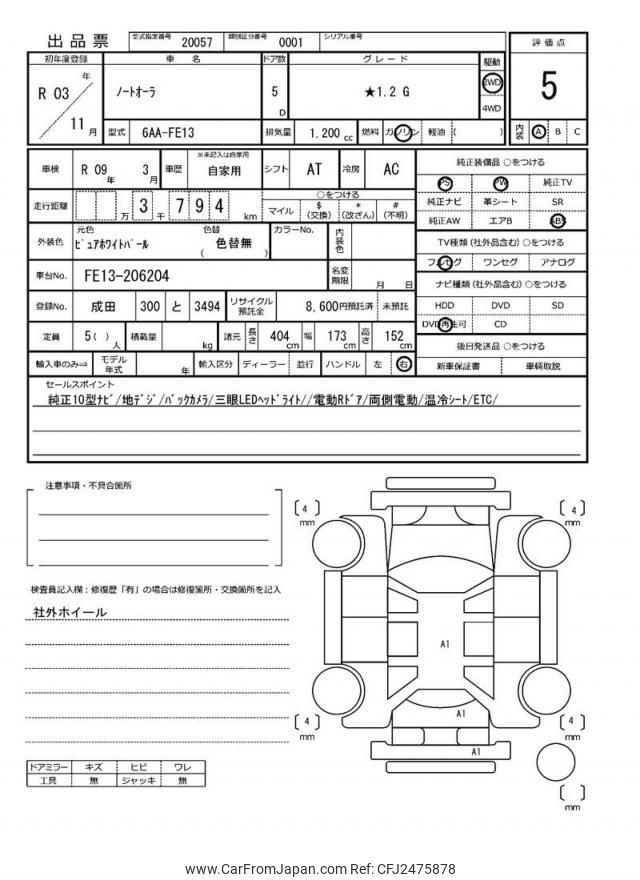 出品票 型式指定番号 20057 類別区分番号 0001 シリアル番号
評価点
5
内装 A B C
初年度登録 車名 ドア数 グレード 駆動
R 03 年 11 月
ノートオーラ 5 D ★1.2 G 2WD 4WD
型式 6AA-FE13 排気量 1,200 cc 燃料 ガソリン 軽油 ( )
車検 R 09 年 3 月 車歴 ※未記入は自家用 自家用 シフト AT 冷房 AC
走行距離 万 3 千 7 9 4 km
○をつける
マイル $ (交換) * (改ざん) # (不明)
外装色 元色 ピュアホワイトパール 色替 ( 色替無 ) カラーNo. 内装色
車台No. FE13-206204 名変期限 月 日
登録No. 成田 300 と 3494 リサイクル預託金 8,600円預託済 未預託
定員 5 ( ) 人 積載量 kg 諸元 長さ 404 cm 幅 173 cm 高さ 152 cm
輸入車のみ⇒ モデル年式 年 輸入区分 ディーラー 並行 ハンドル 左 右
純正装備品 ○をつける
PS PW 純正TV
純正ナビ 革シート SR
純正AW エアB ABS
TV種類 (社外品含む) ○をつける
フルセグ ワンセグ アナログ
ナビ種類 (社外品含む) ○をつける
HDD DVD SD
DVD再生可 CD
後日発送品 ○をつける
新車保証書 車輌取説
セールスポイント
純正10型ナビ/地デジ/バックカメラ/三眼LEDヘッドライト//電動Rドア/両側電動/温冷シート/ETC/
注意事項・不具合箇所
検査員記入欄：修復歴「有」の場合は修復箇所・交換箇所を記入
社外ホイール
ドアミラー キズ ヒビ ワレ
工具 無 ジャッキ 無
[ 4 ] mm
[ 4 ] mm
A1
A1
A1
[ 4 ] mm
[ 4 ] mm
[ ] mm
www.CarFromJapan.com Ref: CFJ2475878